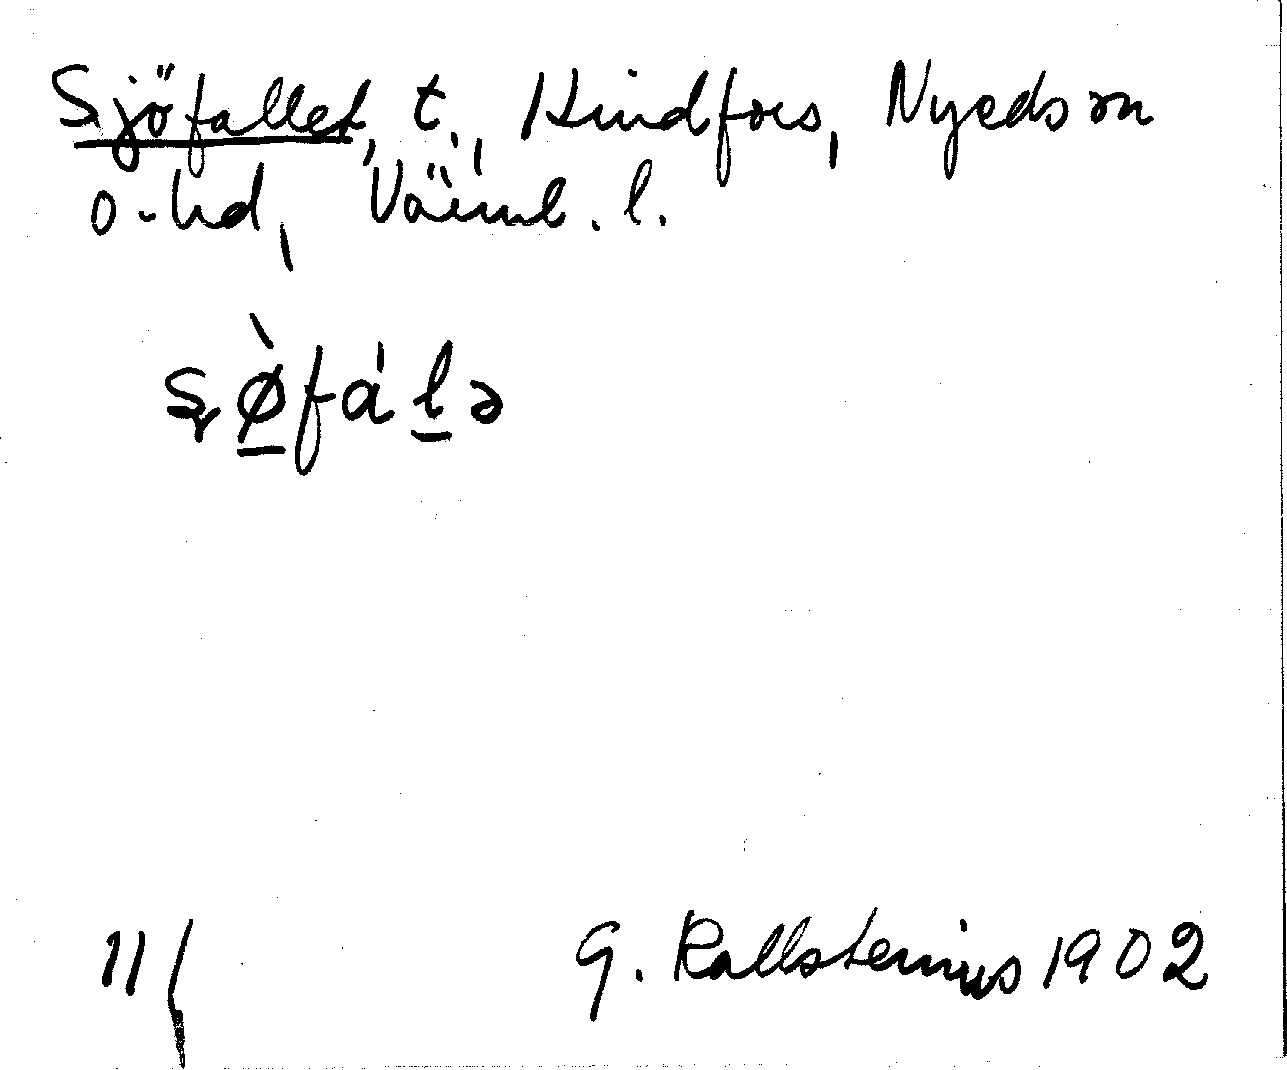 Sjöfallet, t., Kindfors, Nyeds sn
o. hd, Värml. l.
11/
G. Kallstenius 1902